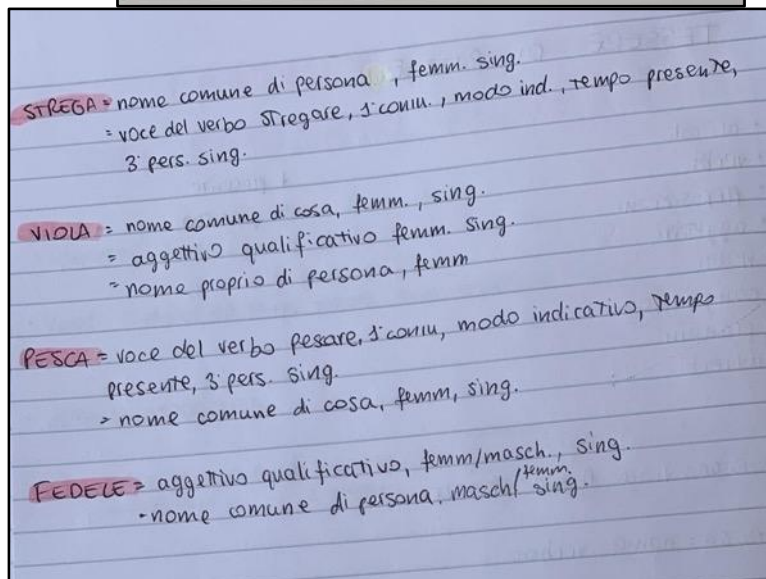 STREGA = nome comune di persona , femm. sing.
= voce del verbo stregare, 1ª coniu., modo ind., tempo presente,
3ª pers. sing.
VIOLA = nome comune di cosa, femm., sing.
= aggettivo qualificativo femm. sing.
= nome proprio di persona, femm
PESCA = voce del verbo pescare, 1ª coniu, modo indicativo, tempo
presente, 3ª pers. sing.
= nome comune di cosa, femm, sing.
FEDELE = aggettivo qualificativo, femm/masch., sing.
- nome comune di persona. masch/femm. sing.